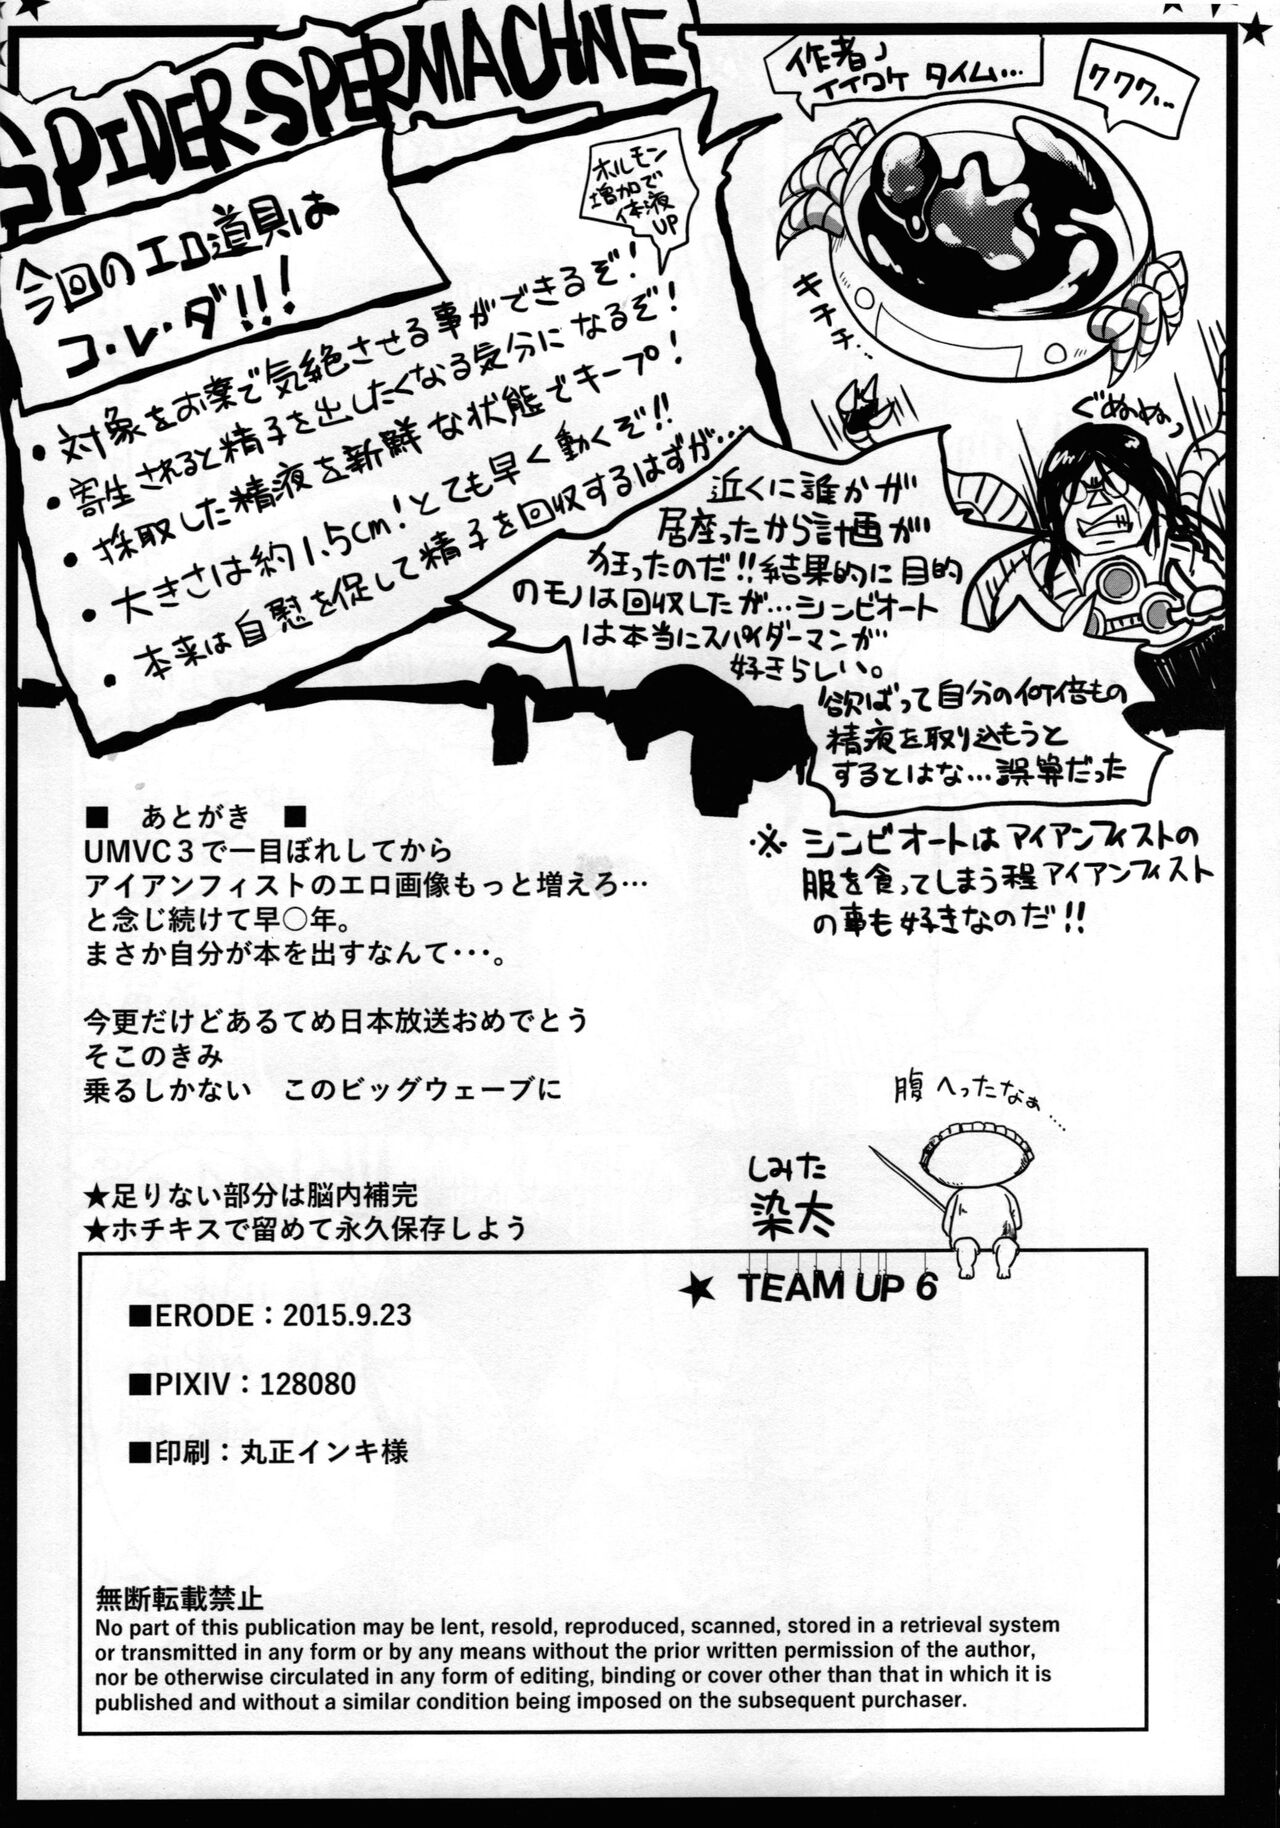 SPIDER-SPERMACHNE
作者ノ
イイワケ タイム…
ククク…
ホルモン
増加で
体液
UP
今回のエロ道具は
コ・レ・ダ!!!
キチチ…
・対象をお薬で気絶させる事ができるぞ!
・寄生されると精子を出したくなる気分になるぞ!
・採取した精液を新鮮な状態でキープ!
・大きさは約1.5cm!とても早く動くぞ!!
・本来は自慰を促して精子を回収するはずが…
ぐぬぬぬっ
近くに誰かが
居座ったから計画が
狂ったのだ!!結果的に目的
のモノは回収したが…シンビオート
は本当にスパイダーマンが
好きらしい。
欲ばって自分の何倍もの
精液を取り込もうと
するとはな…誤算だった
※シンビオートはアイアンフィストの
服を食ってしまう程アイアンフィスト
の事も好きなのだ!!
■ あとがき ■
UMVC3で一目ぼれしてから
アイアンフィストのエロ画像もっと増えろ…
と念じ続けて早○年。
まさか自分が本を出すなんて・・・。
今更だけどあるてめ日本放送おめでとう
そこのきみ
乗るしかない このビッグウェーブに
腹へったなぁ……
しみた
染太
★足りない部分は脳内補完
★ホチキスで留めて永久保存しよう
★ TEAM UP 6
■ERODE：2015.9.23
■PIXIV：128080
■印刷：丸正インキ様
無断転載禁止
No part of this publication may be lent, resold, reproduced, scanned, stored in a retrieval system
or transmitted in any form or by any means without the prior written permission of the author,
nor be otherwise circulated in any form of editing, binding or cover other than that in which it is
published and without a similar condition being imposed on the subsequent purchaser.